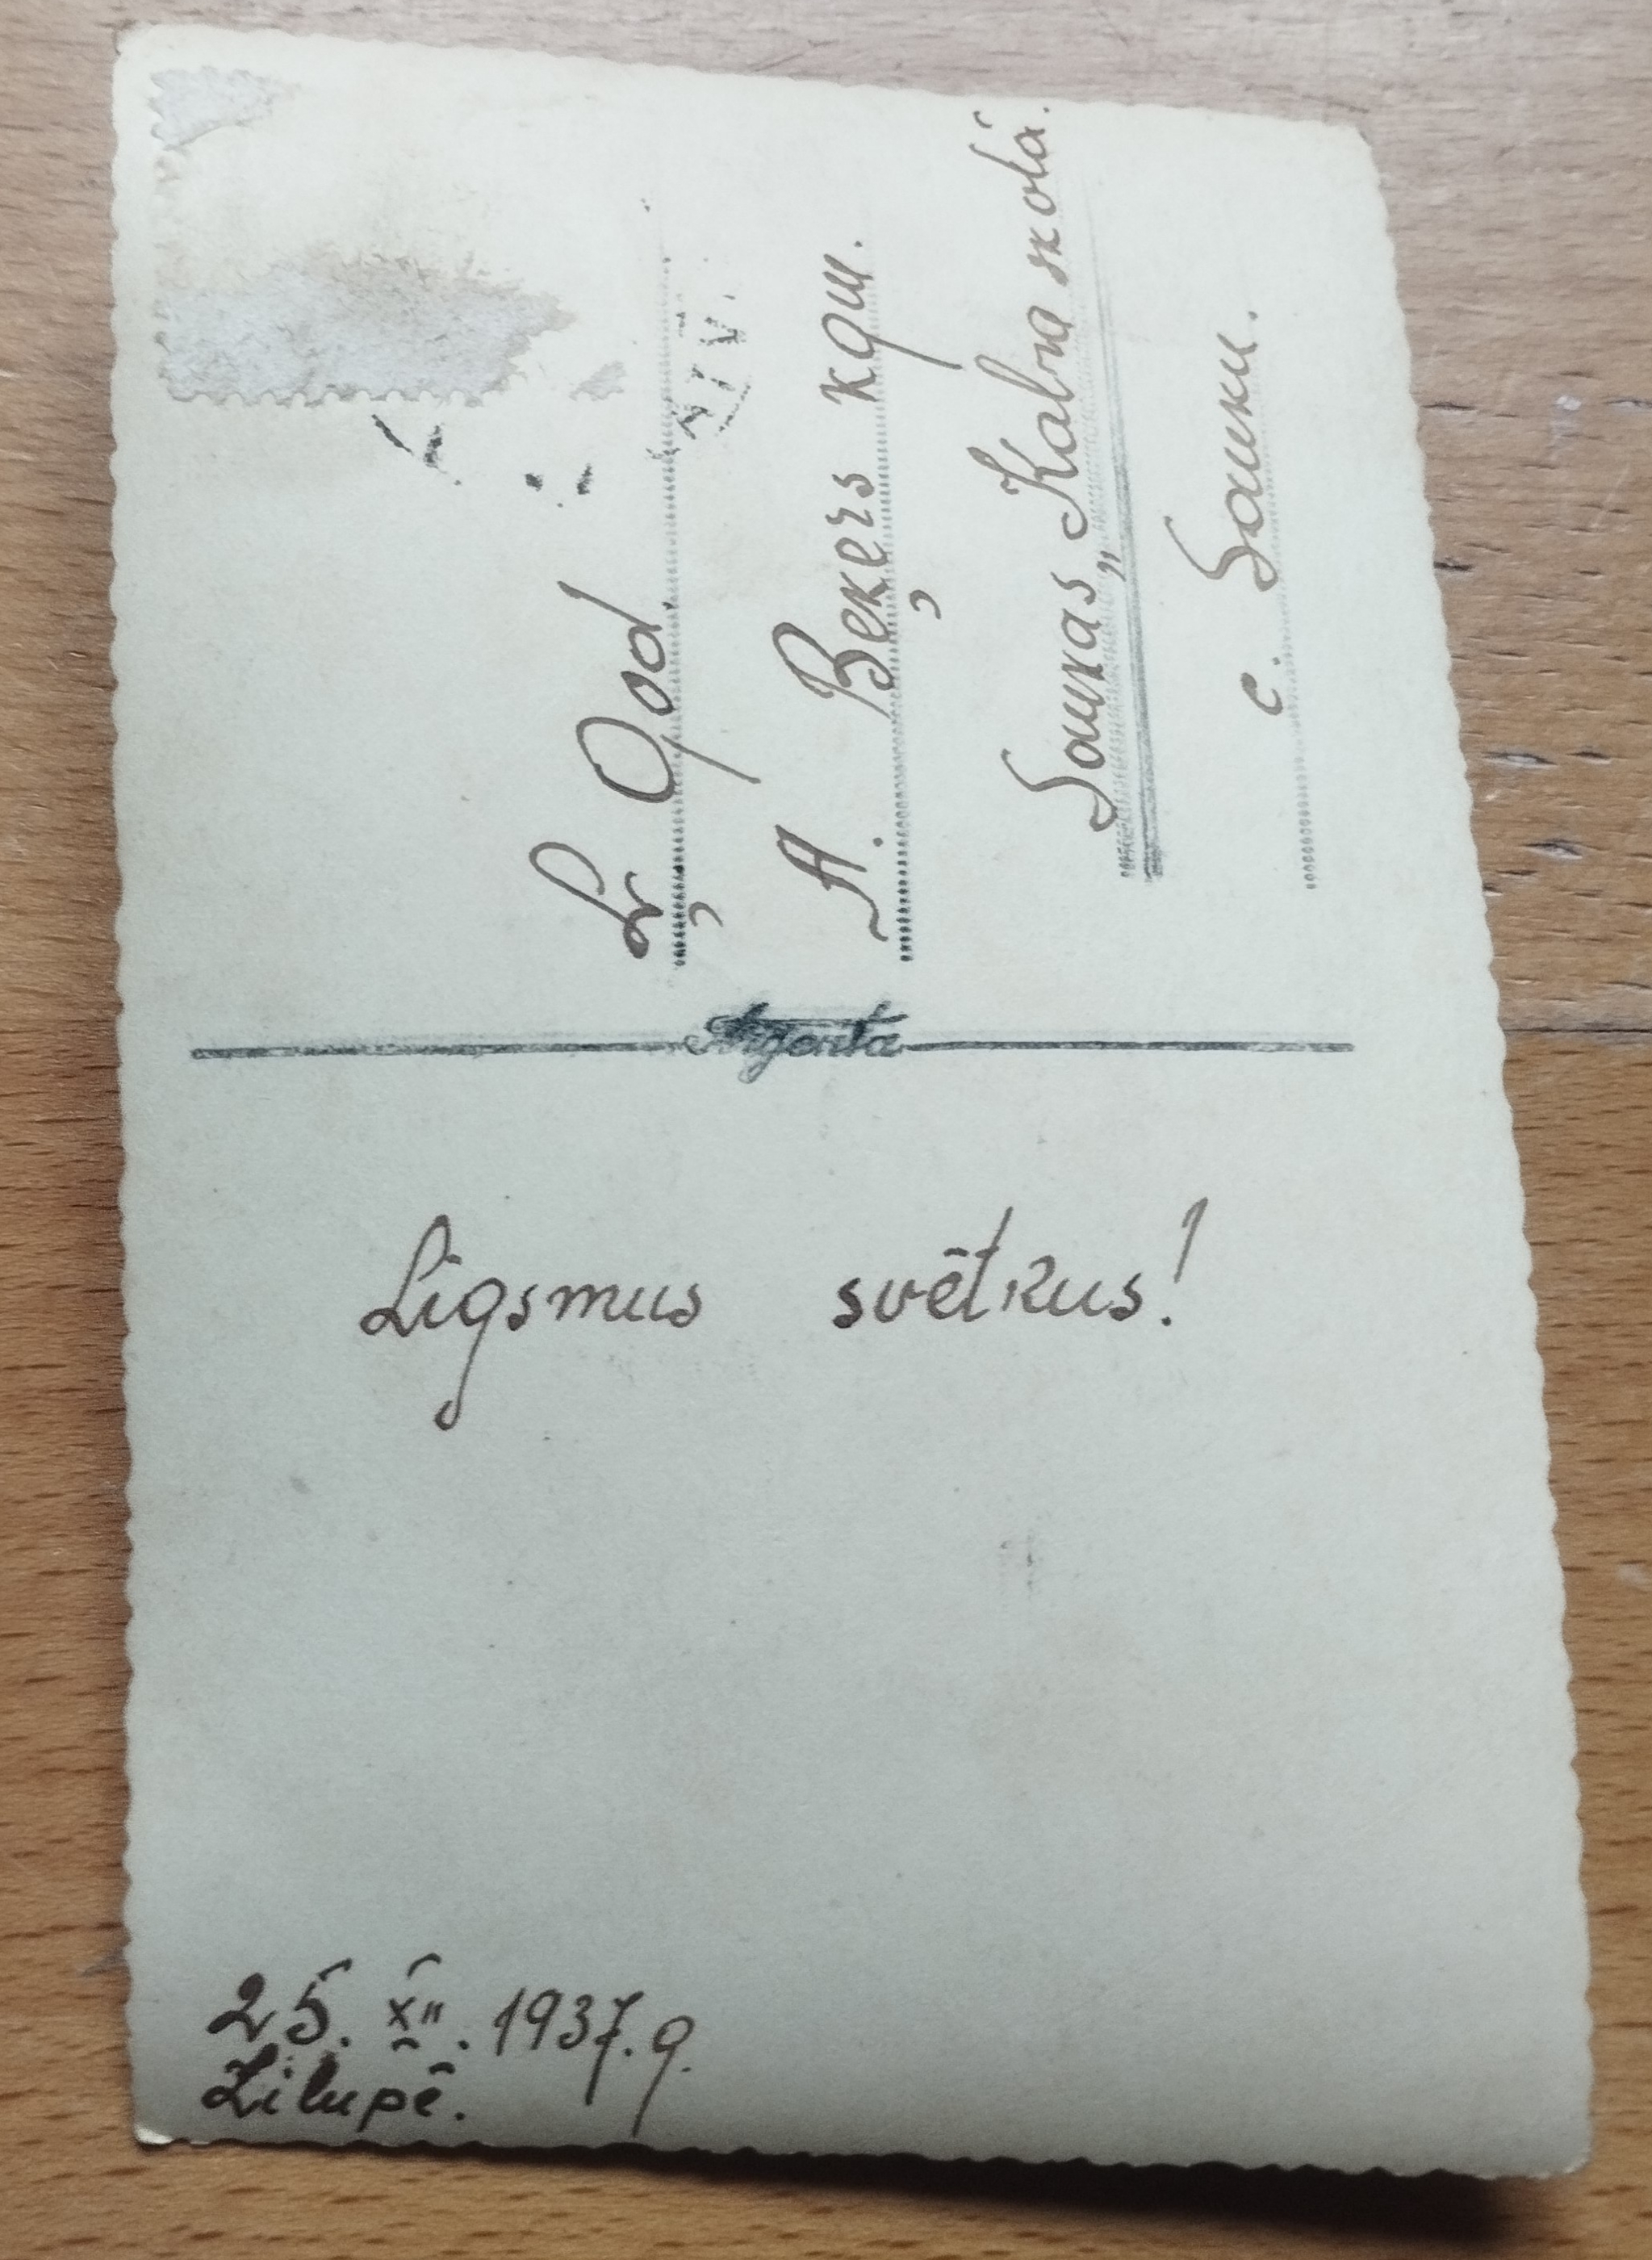 Ļr God.
A. Beķers kgu.
Saukas „Kalna skolā.
c. Sauku.
Argenta
Līgsmus svētkus!
25. XII. 1937. g.
Zilupē.